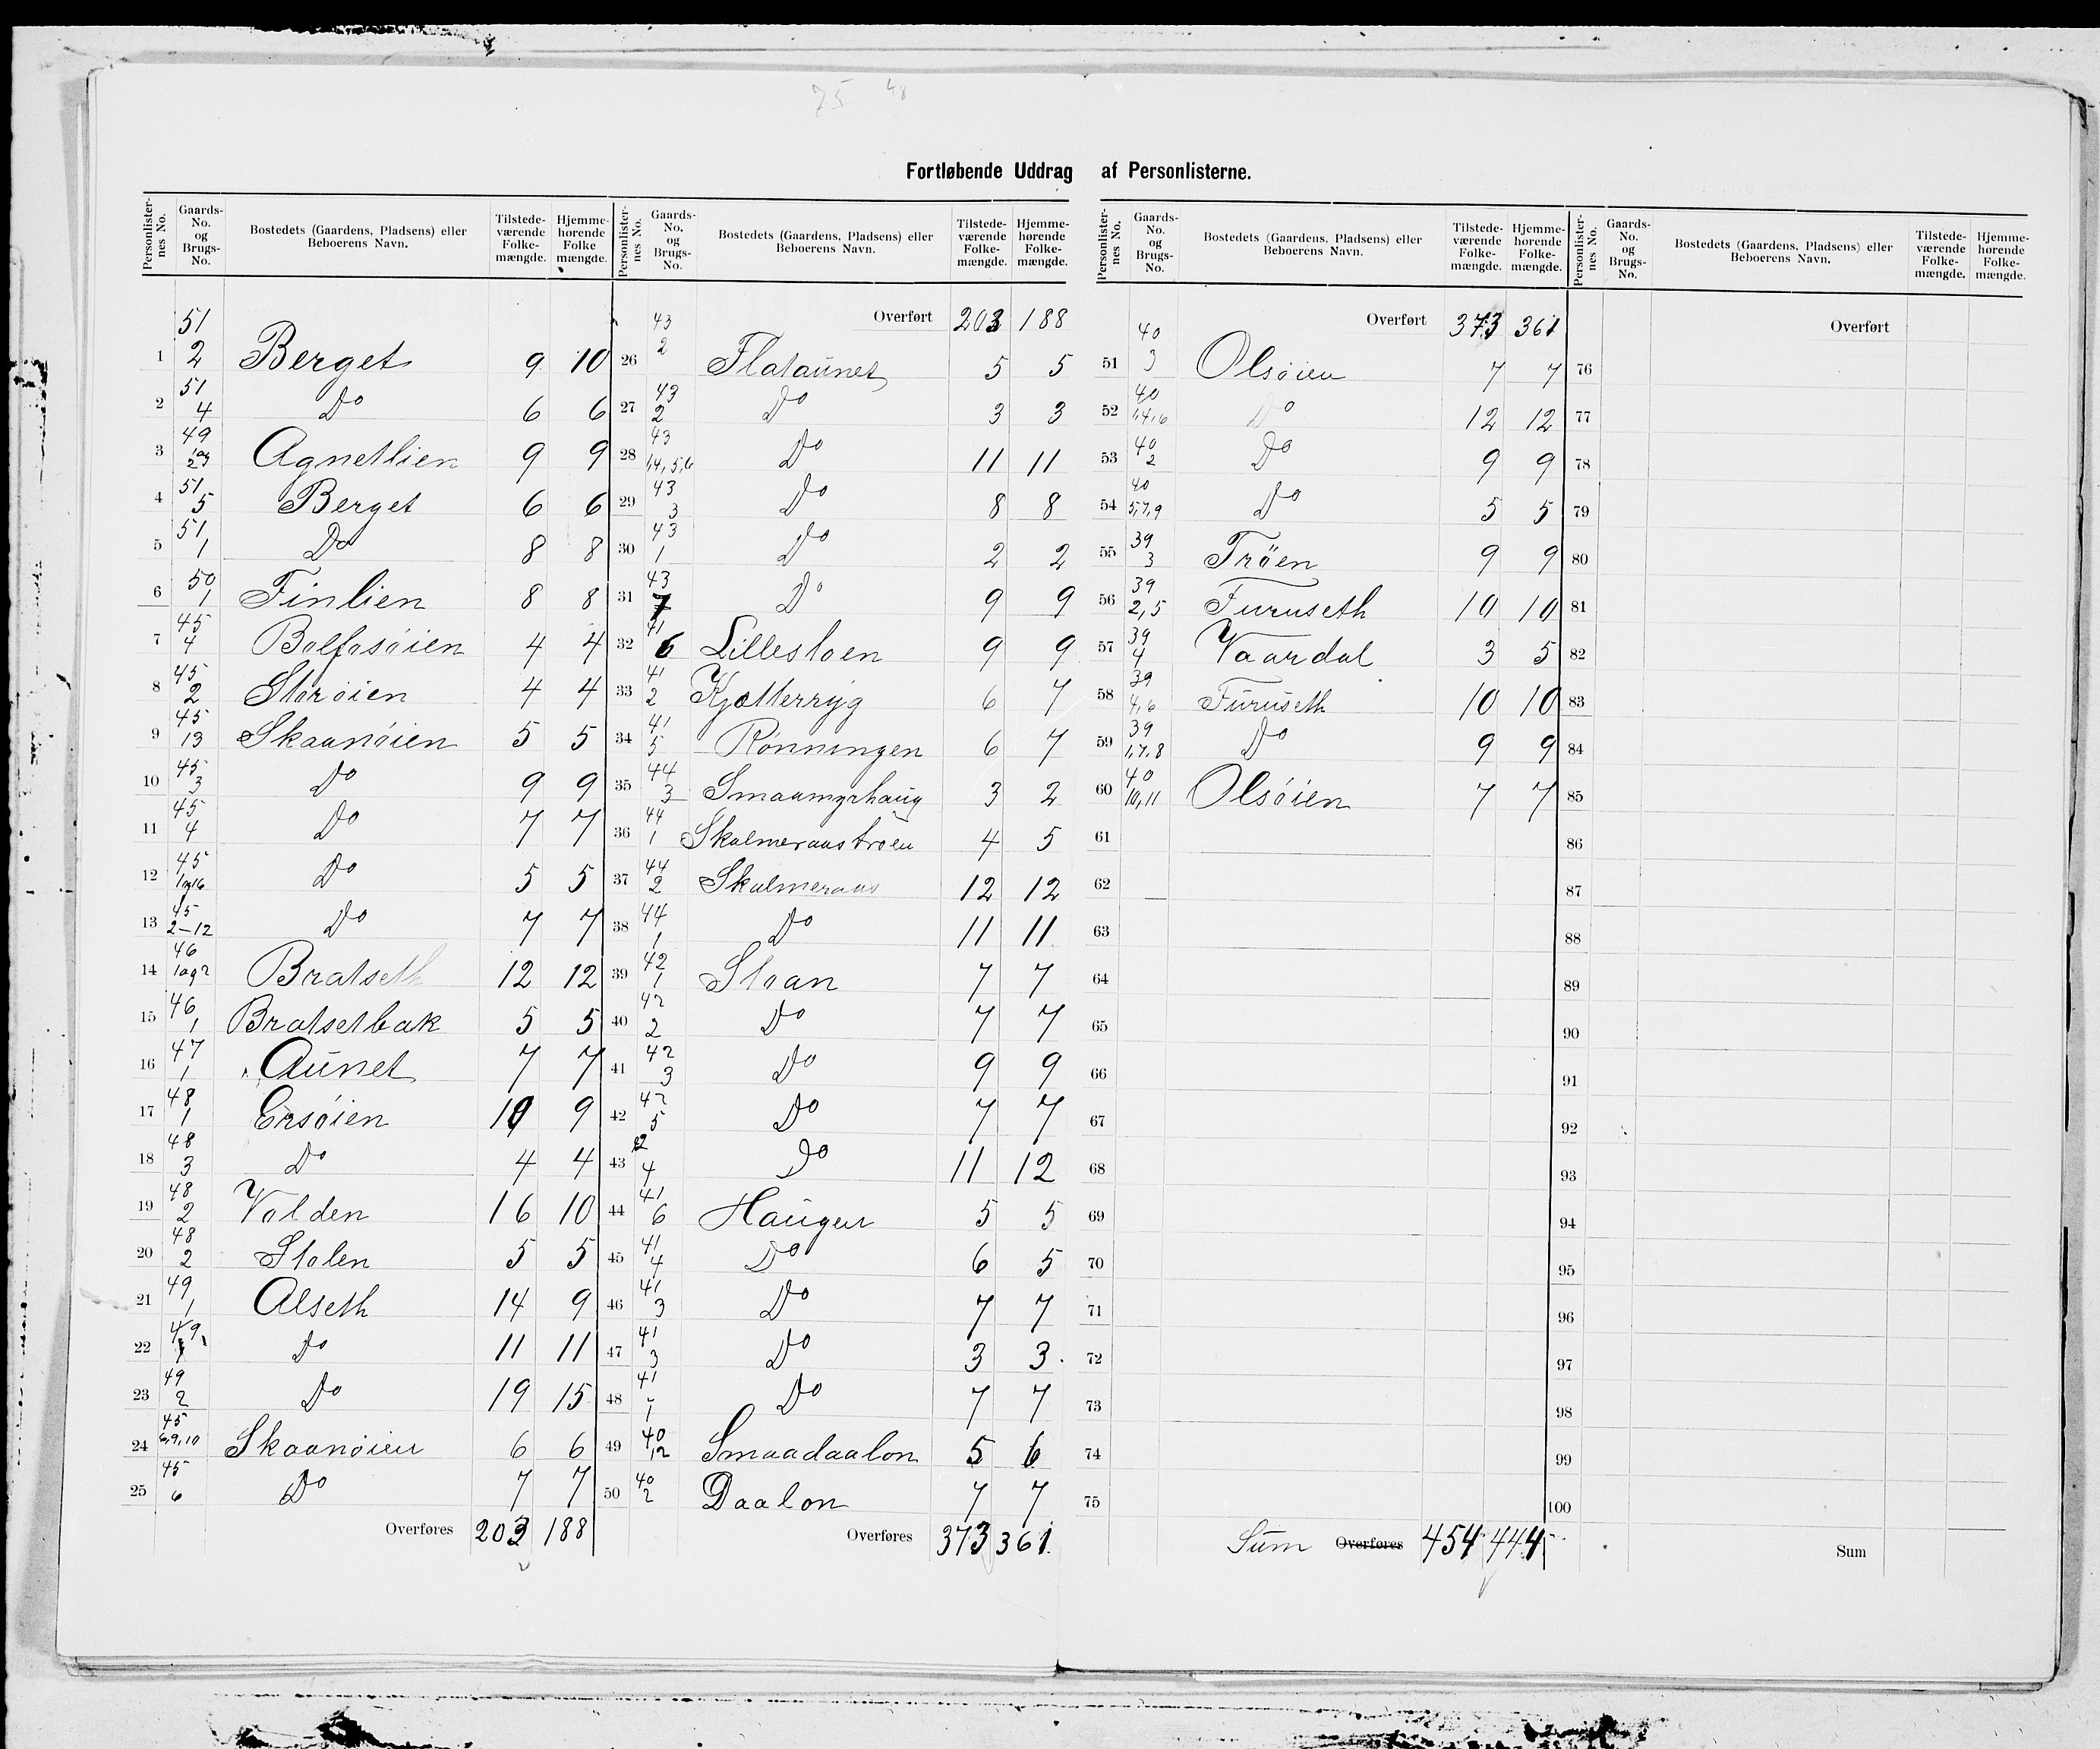 75 48
Fortløbende Uddrag af Personlisterne.
Personlisternes No. Gaards-No. og Brugs-No. Bostedets (Gaardens, Pladsens) eller Beboerens Navn. Tilstedeværende Folkemængde. Hjemmehørende Folkemængde.
1 51 2 Berget 9 10
2 51 4 Do 6 6
3 49 1og2 Agnetlien 9 9
4 51 5 Berget 6 6
5 51 1 Do 8 8
6 50 1 Finlien 8 8
7 45 4 4 4
8 45 2 Storøien 4 4
9 45 13 Skaanøien 5 5
10 45 3 Do 9 9
11 45 4 Do 7 7
12 45 1og16 Do 5 5
13 45 2-12 Do 7 7
14 46 1og2 Bratseth 12 12
15 46 1 Bratsetbak 5 5
16 47 1 Aunet 7 7
17 48 1 Ersøien 10 9
18 48 3 Do 4 4
19 48 2 Volden 16 10
20 48 2 Stolen 5 5
21 49 1 Alseth 14 9
22 49 Do 11 11
23 49 2 Do 19 15
24 45 6,9,10 Skaanøien 6 6
25 45 6 Do 7 7
Overføres 203 188
Personlisternes No. Gaards-No. og Brugs-No. Bostedets (Gaardens, Pladsens) eller Beboerens Navn. Tilstedeværende Folkemængde. Hjemmehørende Folkemængde.
Overført 203 188
26 43 2 Flataunet 5 5
27 43 2 Do 3 3
28 43 1,4,5,6 Do 11 11
29 43 3 Do 8 8
30 43 1 Do 2 2
31 43 7 Do 9 9
32 41 6 Lillestoen 9 9
33 41 2 Kjøtterryg 6 7
34 41 5 Rønningen 6 7
35 44 3 Smaamyrhaug 3 2
36 44 1 Skalmeraastrøen 4 5
37 44 2 Skalmeraas 12 12
38 44 1 Do 11 11
39 42 1 Stoan 7 7
40 42 2 Do 7 7
41 42 3 Do 9 9
42 42 5 Do 7 7
43 42 4 Do 11 12
44 41 6 Haugen 5 5
45 41 4 Do 6 5
46 41 3 Do 7 7
47 41 3 Do 3 3
48 41 1 Do 7 7
49 40 12 Smaadaalon 5 6
50 40 2 Daalon 7 7
Overføres 373 361
Personlisternes No. Gaards-No. og Brugs-No. Bostedets (Gaardens, Pladsens) eller Beboerens Navn. Tilstedeværende Folkemængde. Hjemmehørende Folkemængde.
Overført 373 361
51 40 3 Olsøien 7 7
52 40 1,4,6 Do 12 12
53 40 2 Do 9 9
54 40 5,7,9 Do 5 5
55 39 3 Trøen 9 9
56 39 2,5 Furuseth 10 10
57 39 4 Vaardal 3 5
58 39 4,6 Furuseth 10 10
59 39 1,7,8 Do 9 9
60 40 10,11 Olsøien 7 7
61
62
63
64
65
66
67
68
69
70
71
72
73
74
75
Sum Overføres 454 444
Personlisternes No. Gaards-No. og Brugs-No. Bostedets (Gaardens, Pladsens) eller Beboerens Navn. Tilstedeværende Folkemængde. Hjemmehørende Folkemængde.
Overført
76
77
78
79
80
81
82
83
84
85
86
87
88
89
90
91
92
93
94
95
96
97
98
99
100
Sum